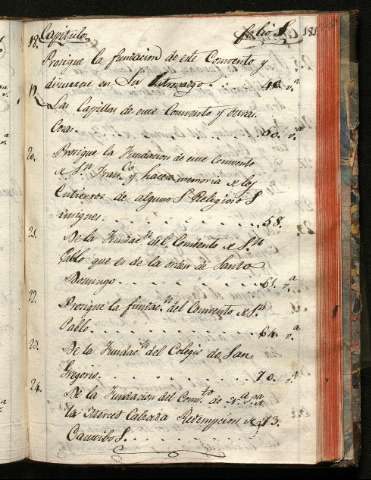 Capitulo. folio 181
18. Prosigue la fundacion de este Convento y
discurese en su 48. v.ª
19. Las Capillas de este Convento y otras
Cosas. 50. v.ª
20. Prosigue la Fundacion de este Convento
de S.n Fran.co y hacese memoria de los
Entierros de algunos Religiosos
insignes. 58.
21. De la Fundac.n del Convento de S.n
Pablo que es de la orden de Santo
Domingo. 61. v.ª
22. Prosigue la fundac.n del Convento de S.n
Pablo. 64. v.ª
23. De la Fundac.n del Colegio de San
Gregorio. 70. v.ª
24. De la Fundacion del Conv.to de N.ª S.ª de
la Merced Calzada Redempcion de 73.
Cautibos.